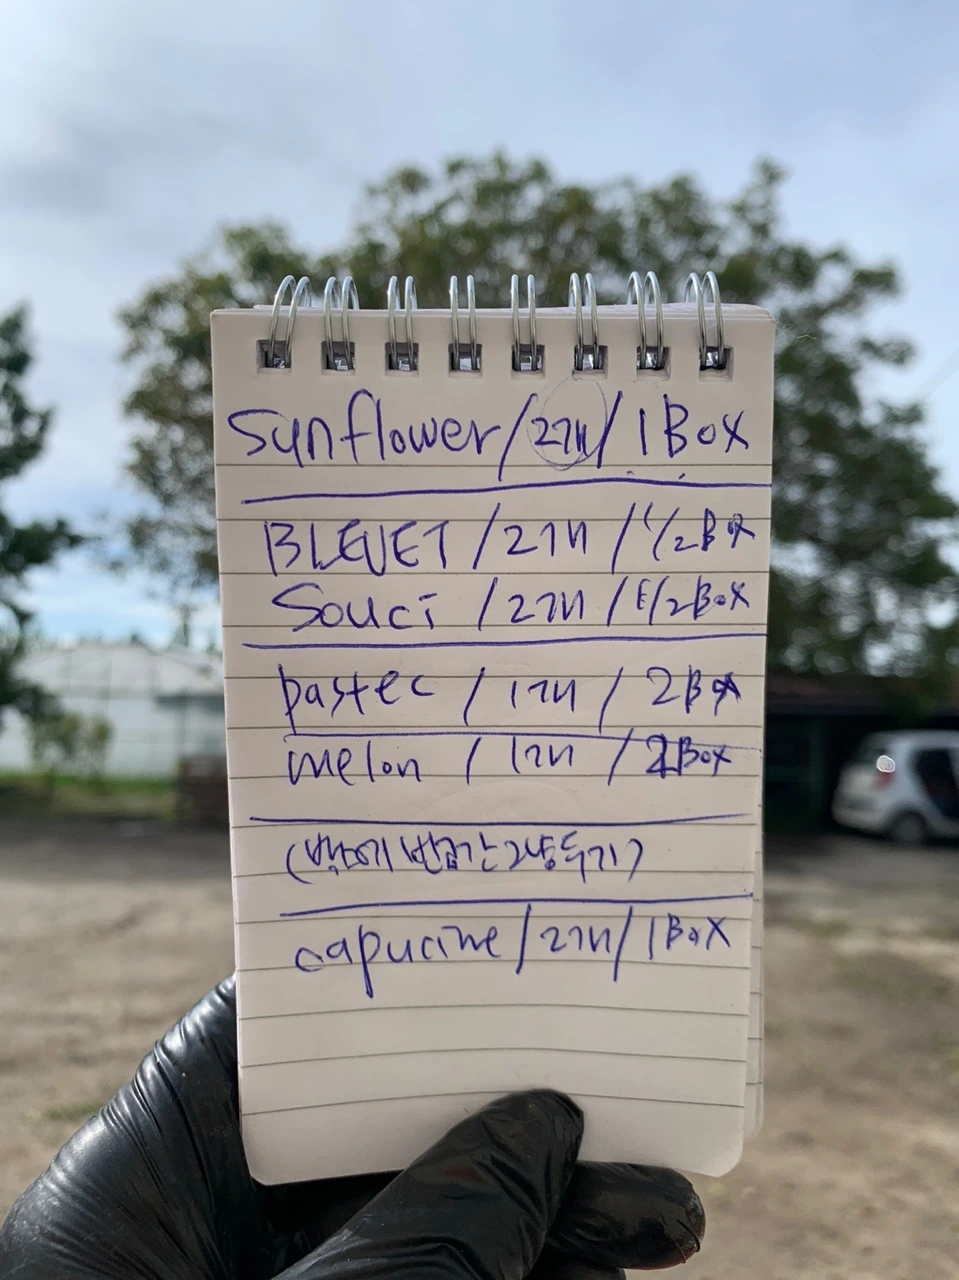 Sunflower/2개/1Box
BLEUET/2개/1/2Box
Souci/2개/1/2Box
pastec/1개/2Box
melon/1개/2Box
(박스에 그냥두기)
capucine/2개/1Box